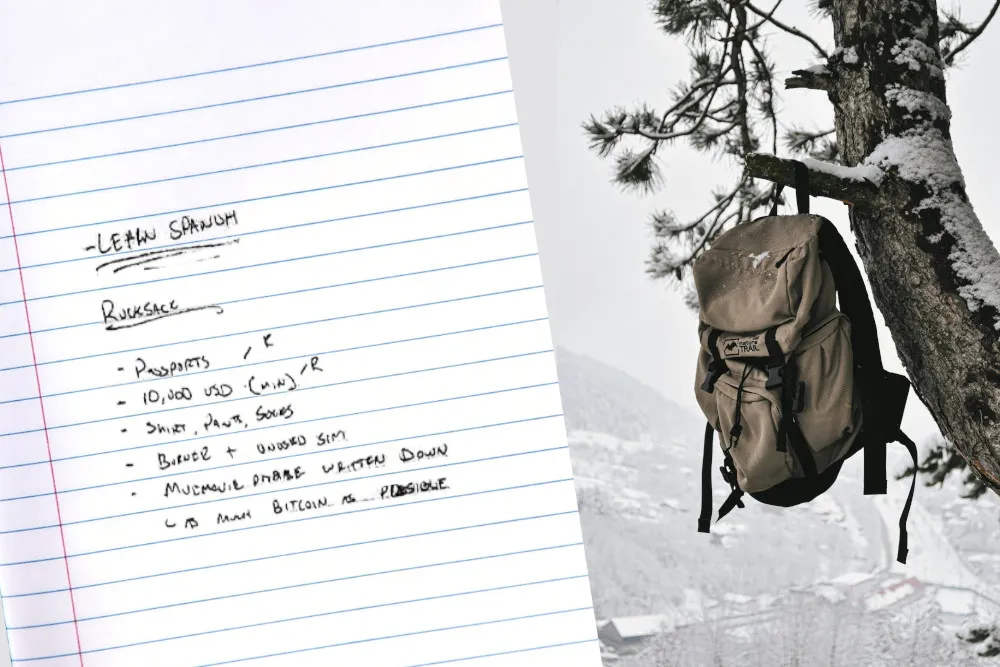 -LEARN SPANISH
RUCKSACK
- PASSPORTS / K
- 10,000 USD (MIN) / R
- SHIRT, PANTS, SOCKS
- BURNER + UNUSED SIM
- MNEMONIC PHRASE WRITTEN DOWN
AS MUCH BITCOIN AS POSSIBLE
nature
TRAIL